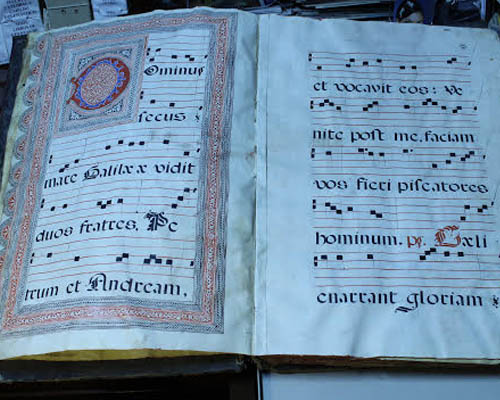 Dominus
secus
mare Galilææ vidit
duos fratres, Pe
trum et Andream,
et vocavit eos: Ve
nite post me, faciam
vos fieri piscatores
hominum. ps. Cæli
enarrant gloriam